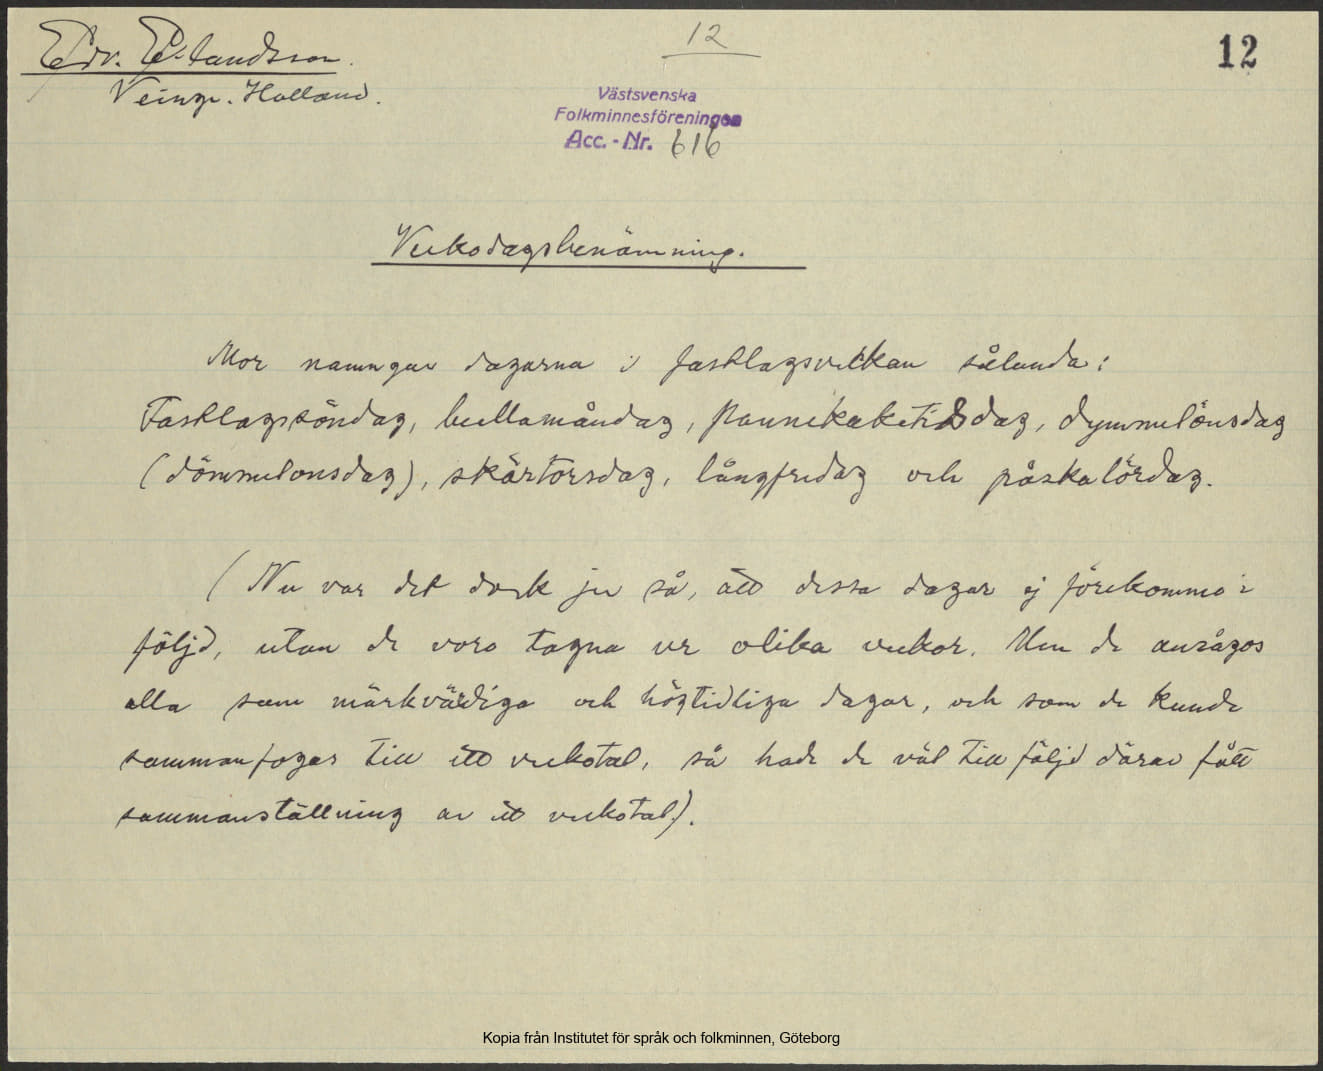 Edv. Erlandsson.
Veinge. Halland.
12
12
Västsvenska
Folkminnesföreningen
Acc. - Nr. 616
Veckodagsbenämning.
Mor namngav dagarna i fastlagsveckan sålunda:
Fastlagssöndag, bullamåndag, pannekaketisdag, dymmelönsdag
(dömmelonsdag), skärtorsdag, långfredag och påskalördag.
(Nu var det dock ju så, att dessa dagar ej förekommo i
följd, utan de voro tagna ur olika veckor. Men de ansågos
alla som märkvärdiga och högtidliga dagar, och som de kunde
sammanfogas till ett veckotal, så hade de väl till följd därav fått
sammanställning av ett veckotal).
Kopia från Institutet för språk och folkminnen, Göteborg